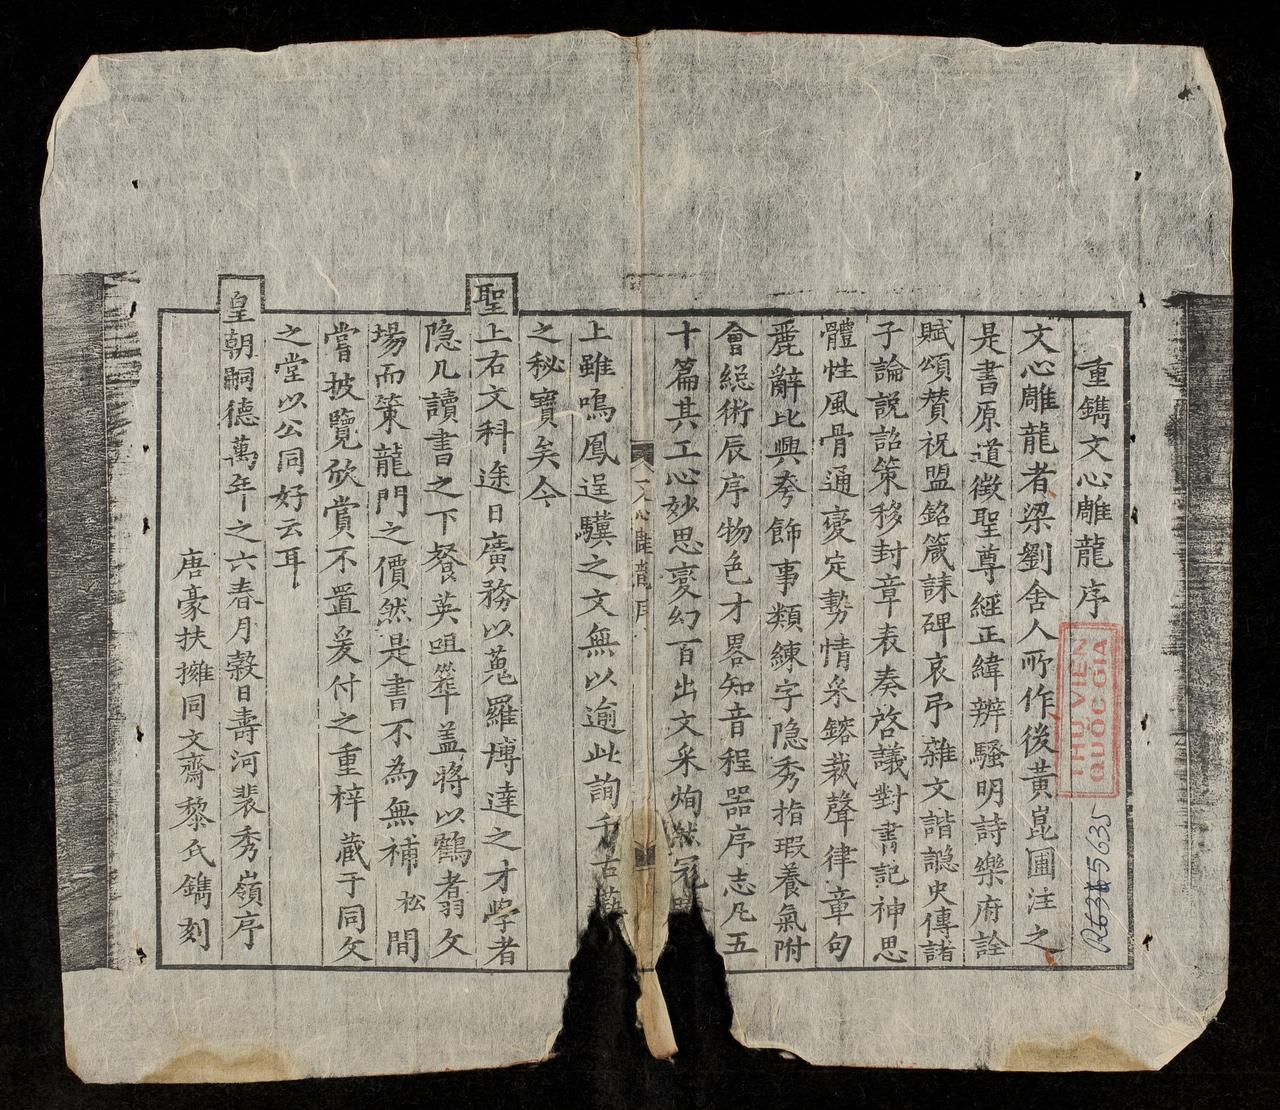 重鐫文心雕龍序
文心雕龍者梁劉舍人所作後黃崑圃注之
是書原道徵聖尊經正緯辨騷明詩樂府詮
賦頌贊祝盟銘箴誄碑哀弔雜文諧讔史傳諸
子論說詔策移封章表奏啓議對書記神思
體性風骨通變定勢情采鎔裁聲律章句
麗辭比興夸飾事類練字隱秀指瑕養氣附
會総術辰序物色才畧知音程器序志凡五
十篇其工心妙思變幻百出文采炳然冠
文心雕龍序
上雖鳴鳳逞驥之文無以逾此詢千古
之秘寶矣今
聖上右文科途日廣務以蒐羅博達之才學者
隐几讀書之下餐英咀華盖將以鶴翥文
場而策龍門之價然是書不為無補松間
嘗披覽欣賞不置爰付之重梓藏于同文
之堂以公同好云耳
皇朝嗣德萬年之六春月穀日壽河裴秀嶺序
唐豪扶擁同文齋黎氏鐫刻
THƯ VIỆN
QUỐC GIA
5635